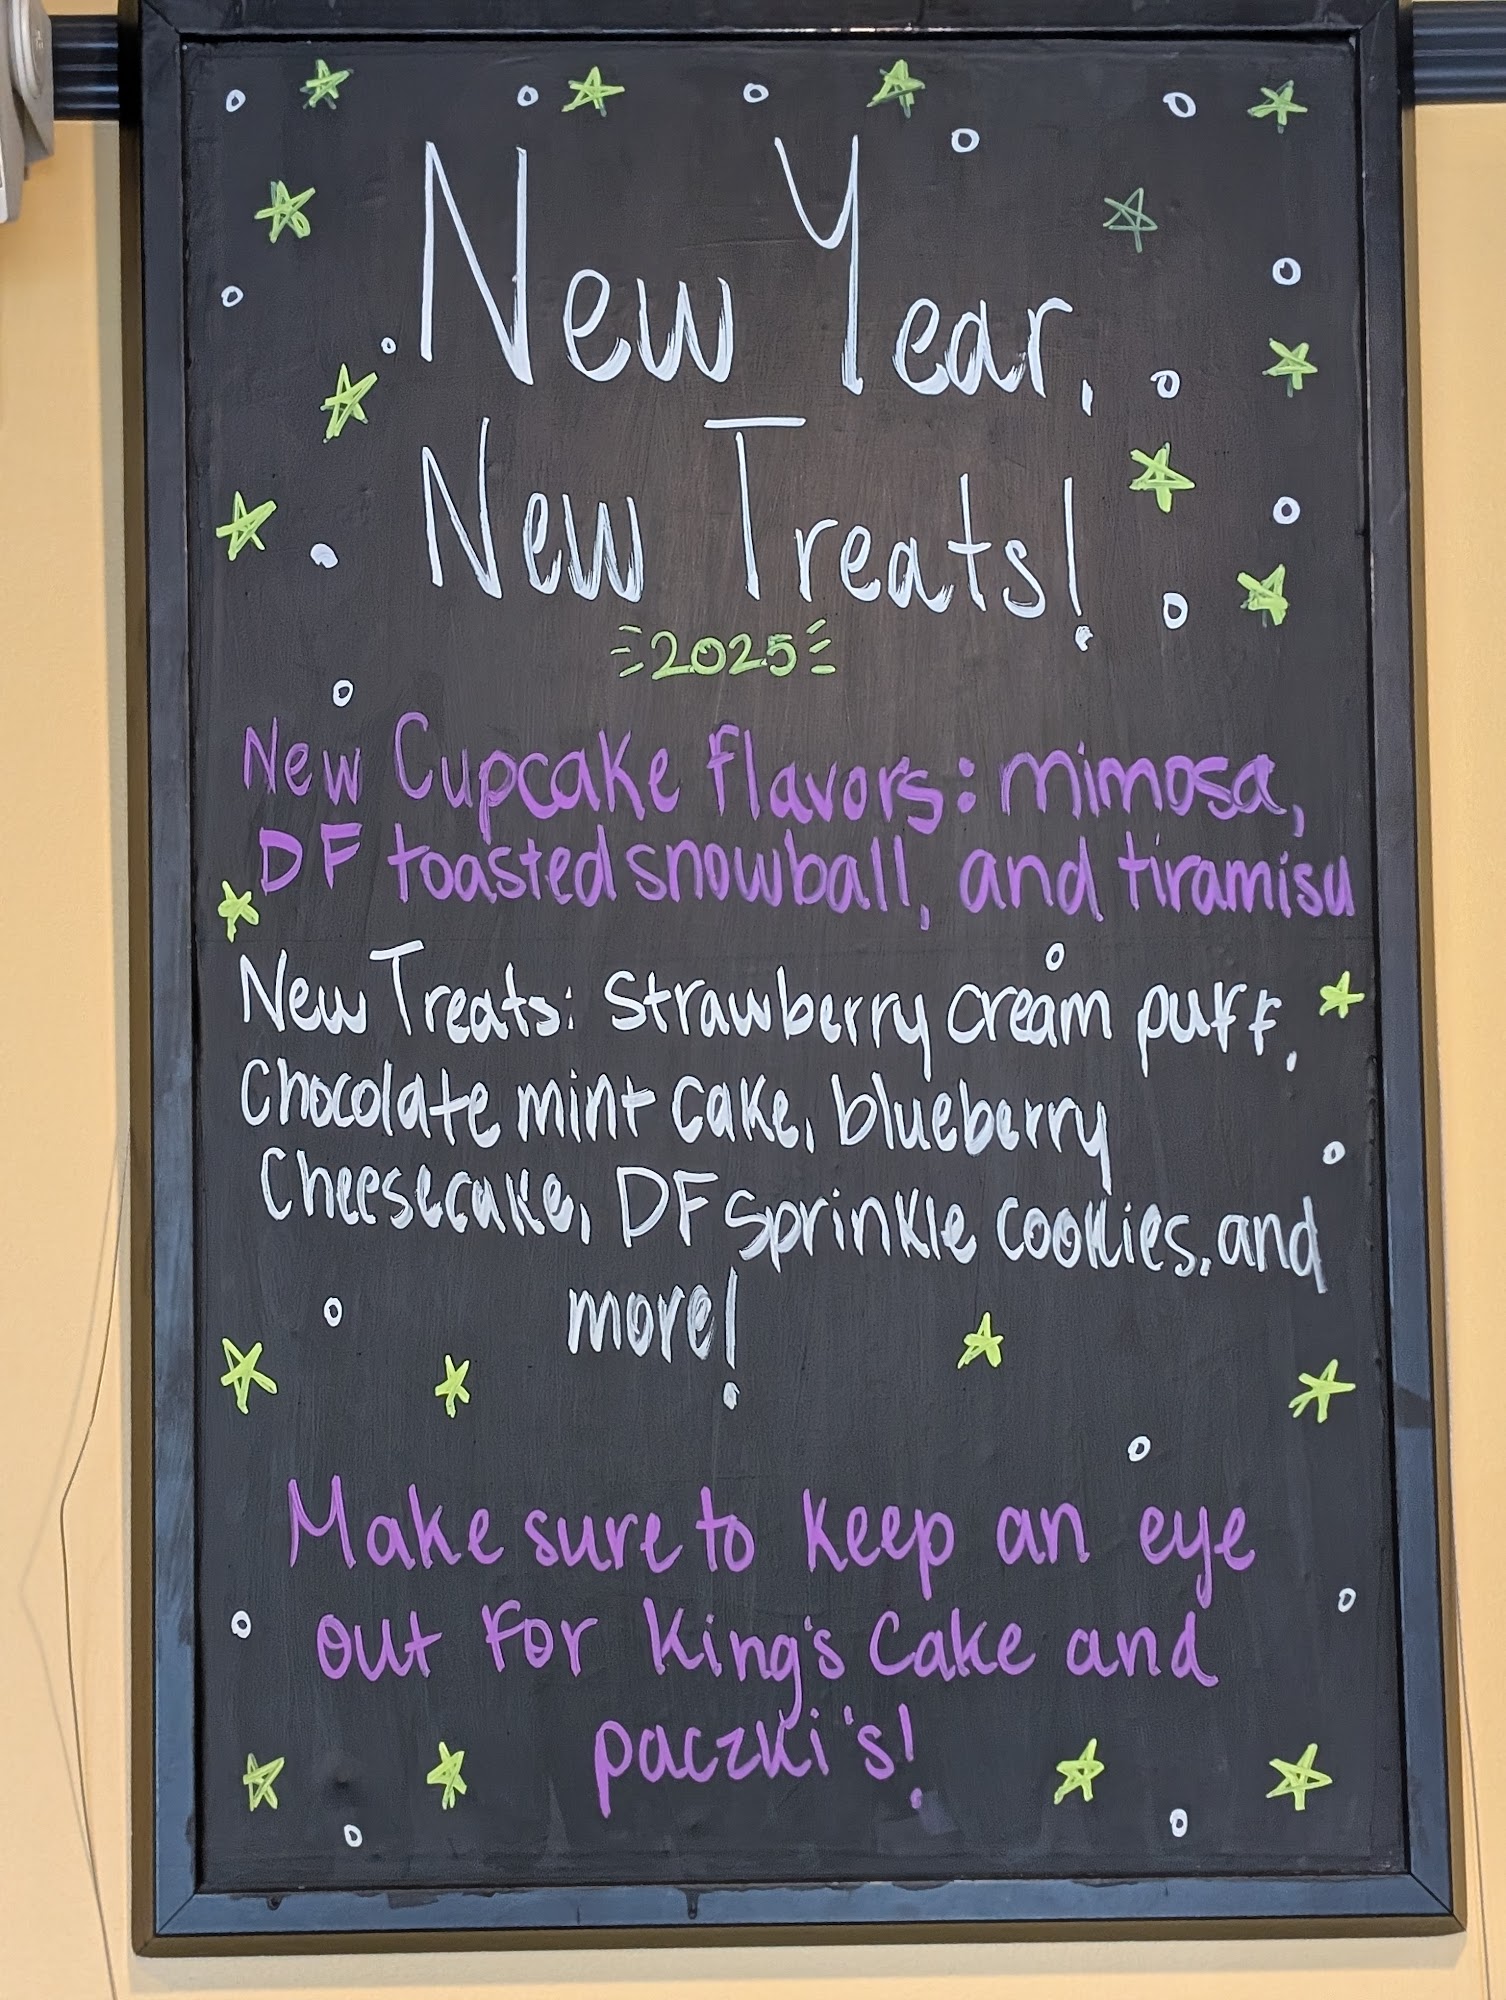 New Year,
New Treats!
2025
New Cupcake flavors: mimosa,
DF toasted snowball, and tiramisu
New Treats: Strawberry cream puff,
Chocolate mint cake, blueberry
Cheesecake, DF Sprinkle cookies, and
more!
Make sure to keep an eye
out for King's Cake and
paczki's!